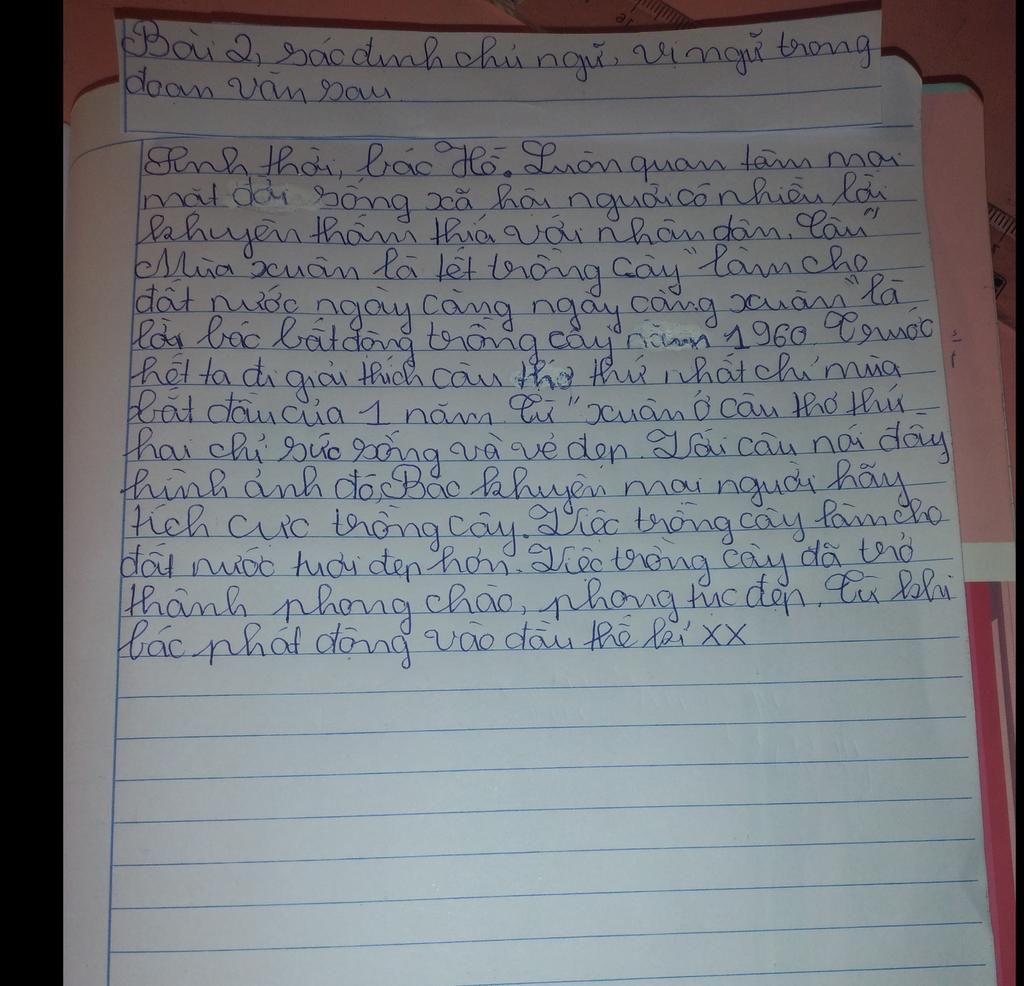 Bài 2, xác định chủ ngữ, vị ngữ trong
đoan văn sau
Sinh thời, bác Hồ. Luôn quan tâm mọi
mặt đời sống xã hôi người có nhiều lời
khuyên thấm thía với nhân dân. Câu "
Mùa xuân là tết trồng cây" làm cho
đất nước ngày càng ngày càng xuân" là
lời bác bắt động trồng cây năm 1960. Trước
hết ta đi giải thích câu thơ thứ nhất chỉ mùa
bắt đầu của 1 năm. Từ "xuân ở câu thơ thứ
hai chỉ sức sống và vẻ đẹp. Với câu nói đầy
hình ảnh đó, Bác khuyên mọi người hãy
tích cực trồng cây. Việc trồng cây làm cho
đất nước tươi đẹp hơn. Việc trồng cây đã trở
thành phong chào, phong tục đẹp. Từ khi
bác phát động vào đầu thế kỉ XX